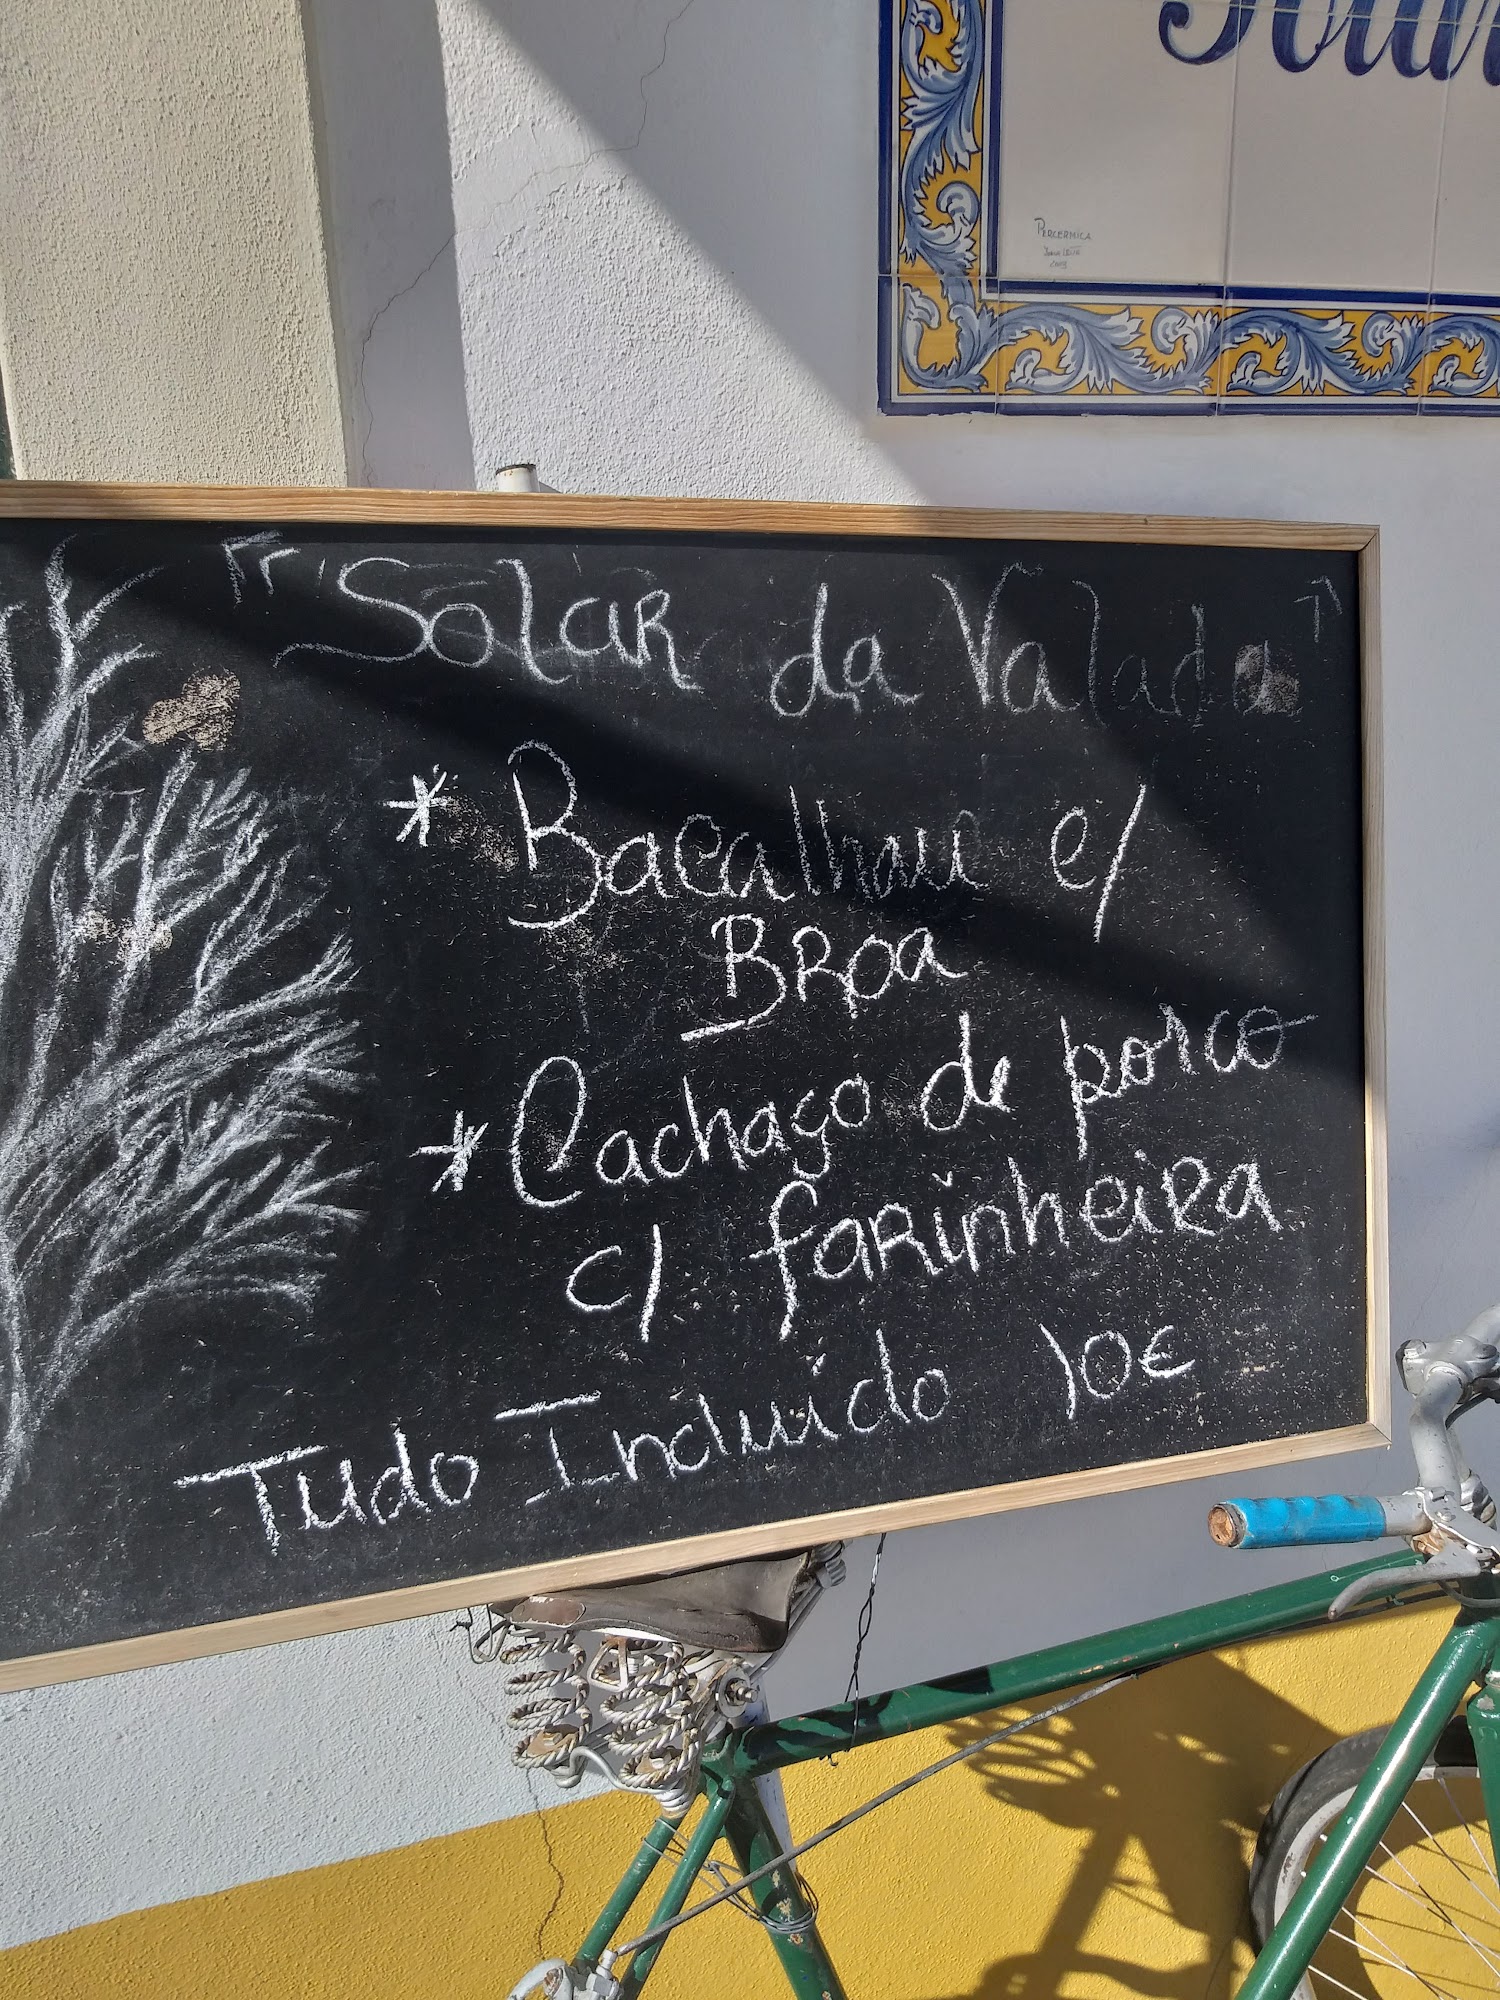 Solar
PERCERMICA
"Solar da Valada"
* Bacalhau c/
Broa
* Cachaço de porco
c/ farinheira
Tudo Incluído 10€